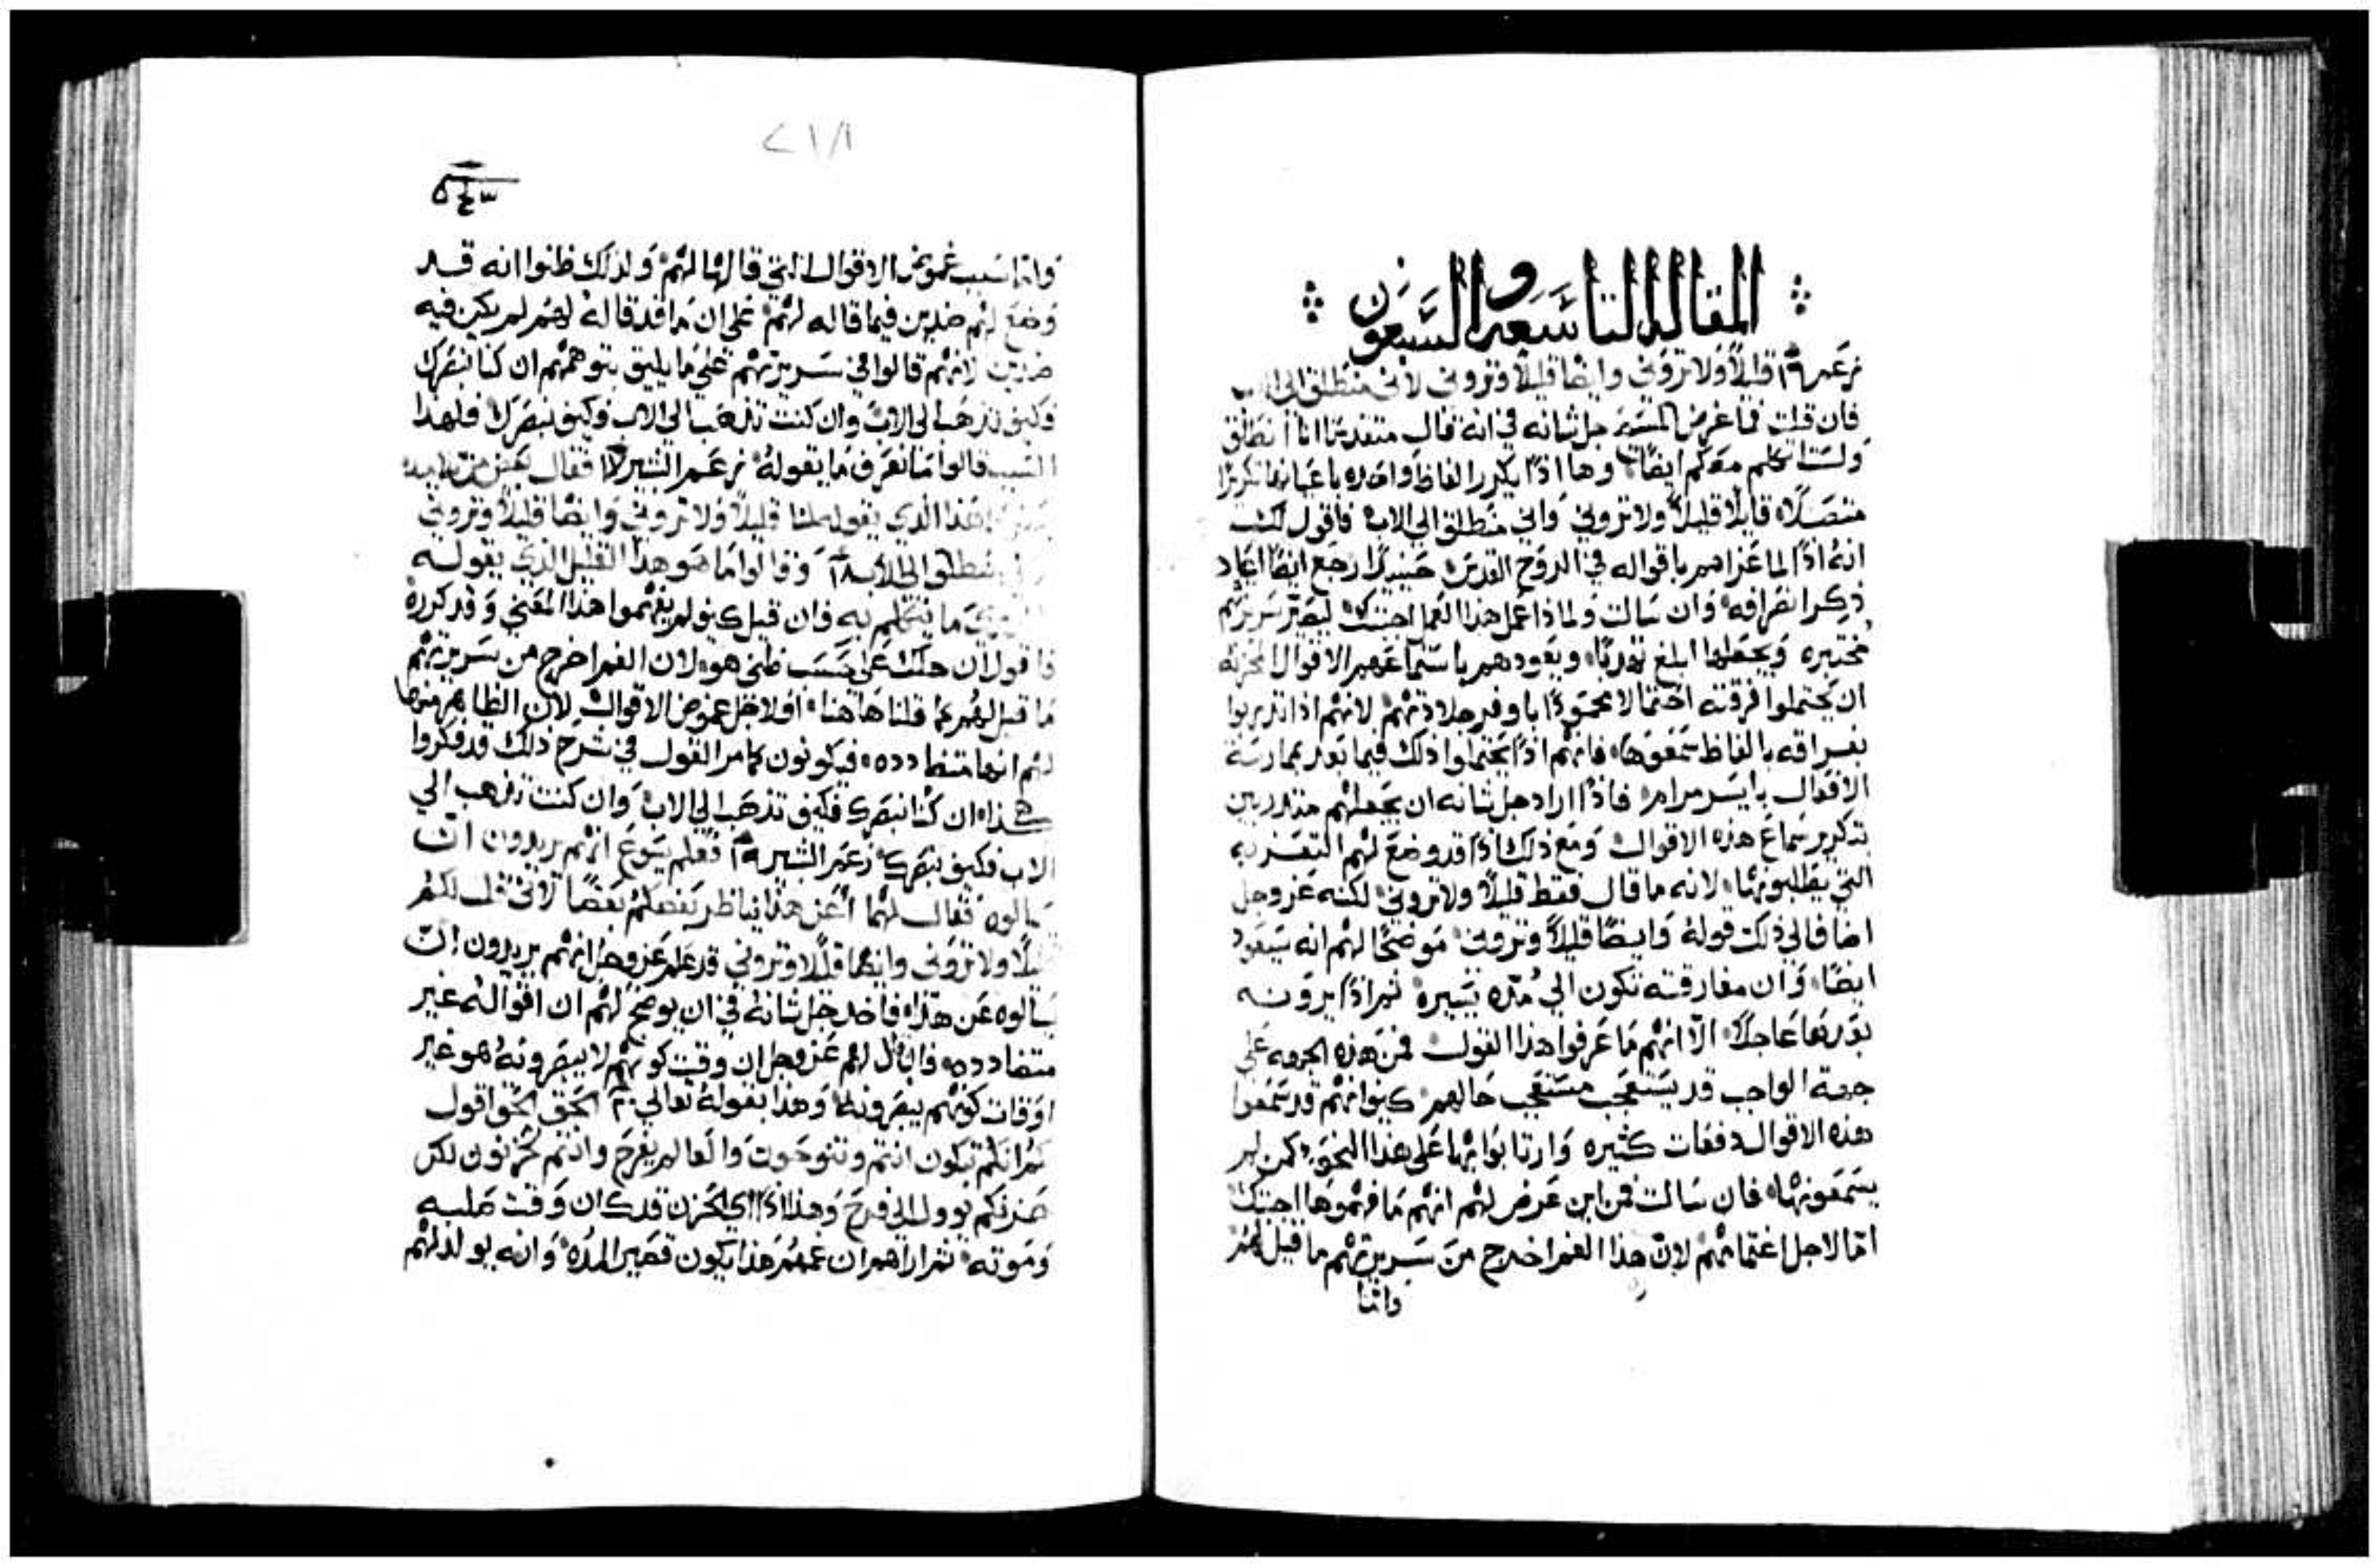 المقاله التاسعه والسبعون
قليلاً ولا تروني وايضا قليلاً وتروني لأني منطلق الى الاب
فان قلت فما غرض المسيح جل شانه في انه قال متقدمًا انا انطلق
ولست اكلم معكم ايضًا وها اذًا يكرر الفاظ واحده باعيانها تكريرًا
متصلاً قايلاً قليلاً ولا تروني واني منطلق الى الاب فاقول لك
انه اذًا لما عزاهم باقواله في الروح القدس حينيذٍ رجع ايضًا اعاد
ذكر انصرافه وان سالت ولماذا عمل هذا العمل اجبتك ليصير سريرتهم
مختبره ويجعلها ابلغ تدربًا ويعودهم باستماعهم الاقوال المحزنه
ان يحتملوا فرقته احتمالا محمودًا باوفر جلادتهم لانهم اذا تدربوا
بفراقه بالفاظ سمعوها فانهم اذًا يحتملوا ذلك فيما بعد بممارسة
الافعال بايسر مرام فاذًا اراد جل شانه ان يجعلهم متدربين
بتكرير سماع هذه الاقوال ومع ذلك اذًا قد وضع لهم التعزيه
التي يطلبونها لانه ما قال فقط قليلاً ولا تروني لكنه عز وجل
اضاف الى ذلك قوله وايضًا قليلاً وتروني موضحًا لهم انه سيعود
ايضًا وان مفارقته تكون الي مُدّه يسيره ثم اذًا يرونه
بعدها عاجلاً الّا انهم ما عرفوا هذا القول فمن هذه الجهه على
جهة الواجب قد يستعجب مستعجب حالهم كيف انهم قد سمعوا
هذه الاقوال دفعات كثيره وارتابوا بها على هذا النحو كمن لم
يسمعونها فان سالت فمن اين عرض لهم انهم ما فهموها اجبتك
امّا لاجل اغتمامهم لانّ هذا الغم اخرج من سريرتهم ما قيل لهم
وامّا
٥٤٣
وامّا سبب غموض الاقوال التي قالها لهم ولذلك ظنوا انه قد
وضع لهم ضدين فيما قاله لهم على ان ما قد قاله لهم لم يكن فيه
ضدين لانهم قالوا في سريرتهم على ما يليق بتوهمهم ان كنا نبصرك
فكيف تذهب الى الاب وان كنت تذهب الى الاب فكيف نبصرك فلهذا
السبب قالوا ما نعرف ما يقوله زعم البشير ١٧ فقال بعض من تلاميذه
هذا الذي يقوله لنا قليلاً ولا تروني وايضًا قليلاً وتروني
منطلق الى الاب ١٨ وقالوا ما هو هذا القليل الذي يقوله
ما يتكلم به فان قيل كيف لم يفهموا هذا المعني وقد كرره
فاقول ان ذلك على حسب ظني هو لان الغم اخرج من سريرتهم
ما قيل لهم كما قلنا هاهنا او لاجل غموض الاقوال لان الظاهر منها
لهم انها متضادده فيكونون كما مر القول في شرح ذلك قد فكروا
هكذا ان كنا نبصرك فكيف تذهب الى الاب وان كنت تذهب الي
الاب فكيف نبصرك زعم البشير ١٩ فعلم يسوع انهم يريدون انّ
يسالوه فقال لهم أعن هذا يناظر بعضكم بعضًا لاني قلت لكم
قليلًا ولا تروني وايضا قليلًا وتروني قد علم عز وجل انهم يريدون انّ
يسالوه عن هذا فاخذ جل شانه في ان يوضح لهم ان اقواله غير
متضادده فابان لهم عز وجل ان وقت كونهم لا يبصرونه هو غير
اوقات كونهم يبصرونه وهذا بقوله تعالي ٢٠ الحق الحق اقول
لكم انكم تبكون انتم وتنوحون والعالم يفرح وانتم تحزنون لكن
حزنكم يوول الى فرح وهذا اذًا اي الحزن قد كان وقت صلبه
وموته ثم اراهم ان غمهم هذا يكون قصير المدّه وانه يولد لهم